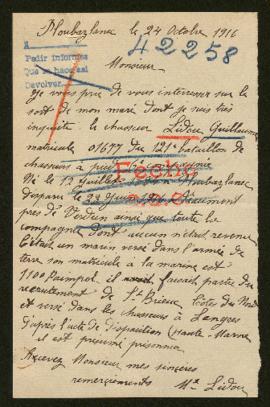 Ploubazlanec le 24 Octobre 1916
42258
A
Pedir informes
Que se hace así
Devolver
Monsieur
Je vous prie de vous intéresser sur le
sort de mon mari dont je suis très
inquiète. le chasseur Lidou Guillaume
matricule 01677 du 121e bataillon de
chasseurs à pied
Né le 12 Juillet Ploubazlanec
disparu le 22 1916
près de Verdun ainsi que toute la
compagnie dont aucun n'était revenu
C'était un marin versé dans l'armée de
terre son matricule à la marine est:
1100 Paimpol il faisait partie du
recrutement de St Brieuc Côtes du Nord
et versé dans les chasseurs à Langres
d'après l'acte de disparition (Haute-Marne
il est présumé prisonnier
Recevez Monsieur mes sincères
remerciements Me Lidou
Fecho